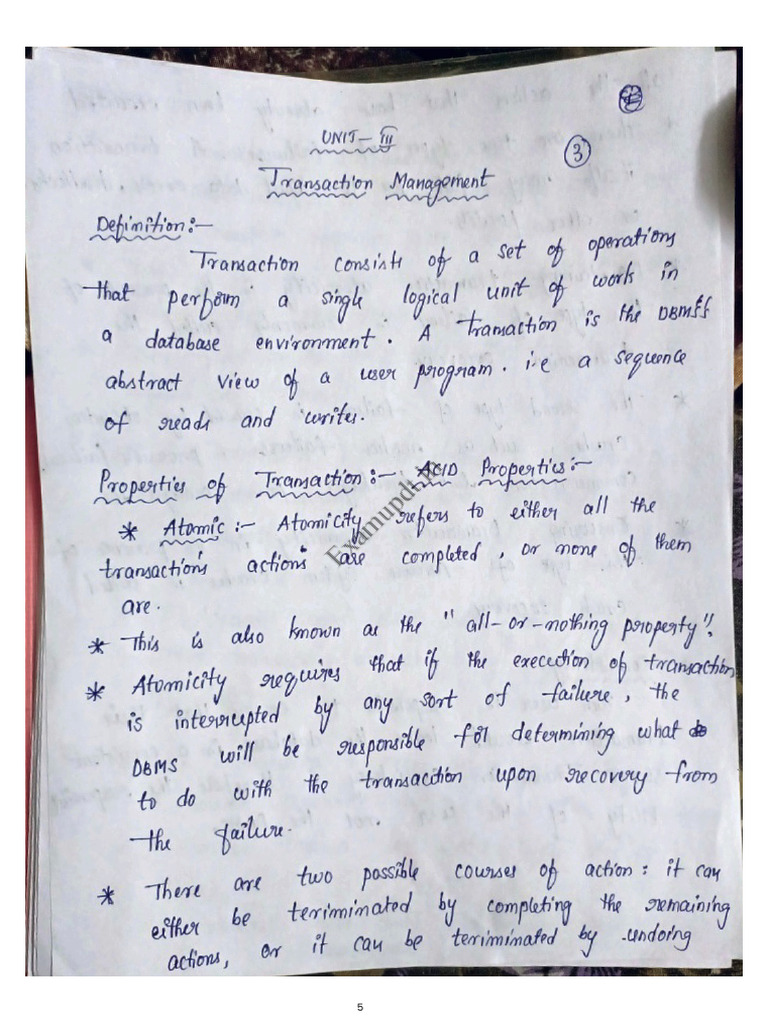 UNIT-III
3
Transaction Management
Definition:-
Transaction consists of a set of operations
That perform a single logical unit of work in
a database environment. A tranaction is the DBMS's
abstract view of a user program. i.e a sequence
of reads and writes.
Properties of Transaction:- ACID Properties:-
* Atomic:- Atomicity refers to either all the
transaction's actions are completed, or none of them
are.
* This is also known as the "all-or-nothing property".
* Atomicity requires that if the execution of transaction
is interrupted by any sort of failure, the
DBMS will be responsible for determining what
to do with the transaction upon recovery from
the failure.
* There are two possible courses of action: it can
either be teriminated by completing the remaining
actions, or it can be teriminated by undoing
5